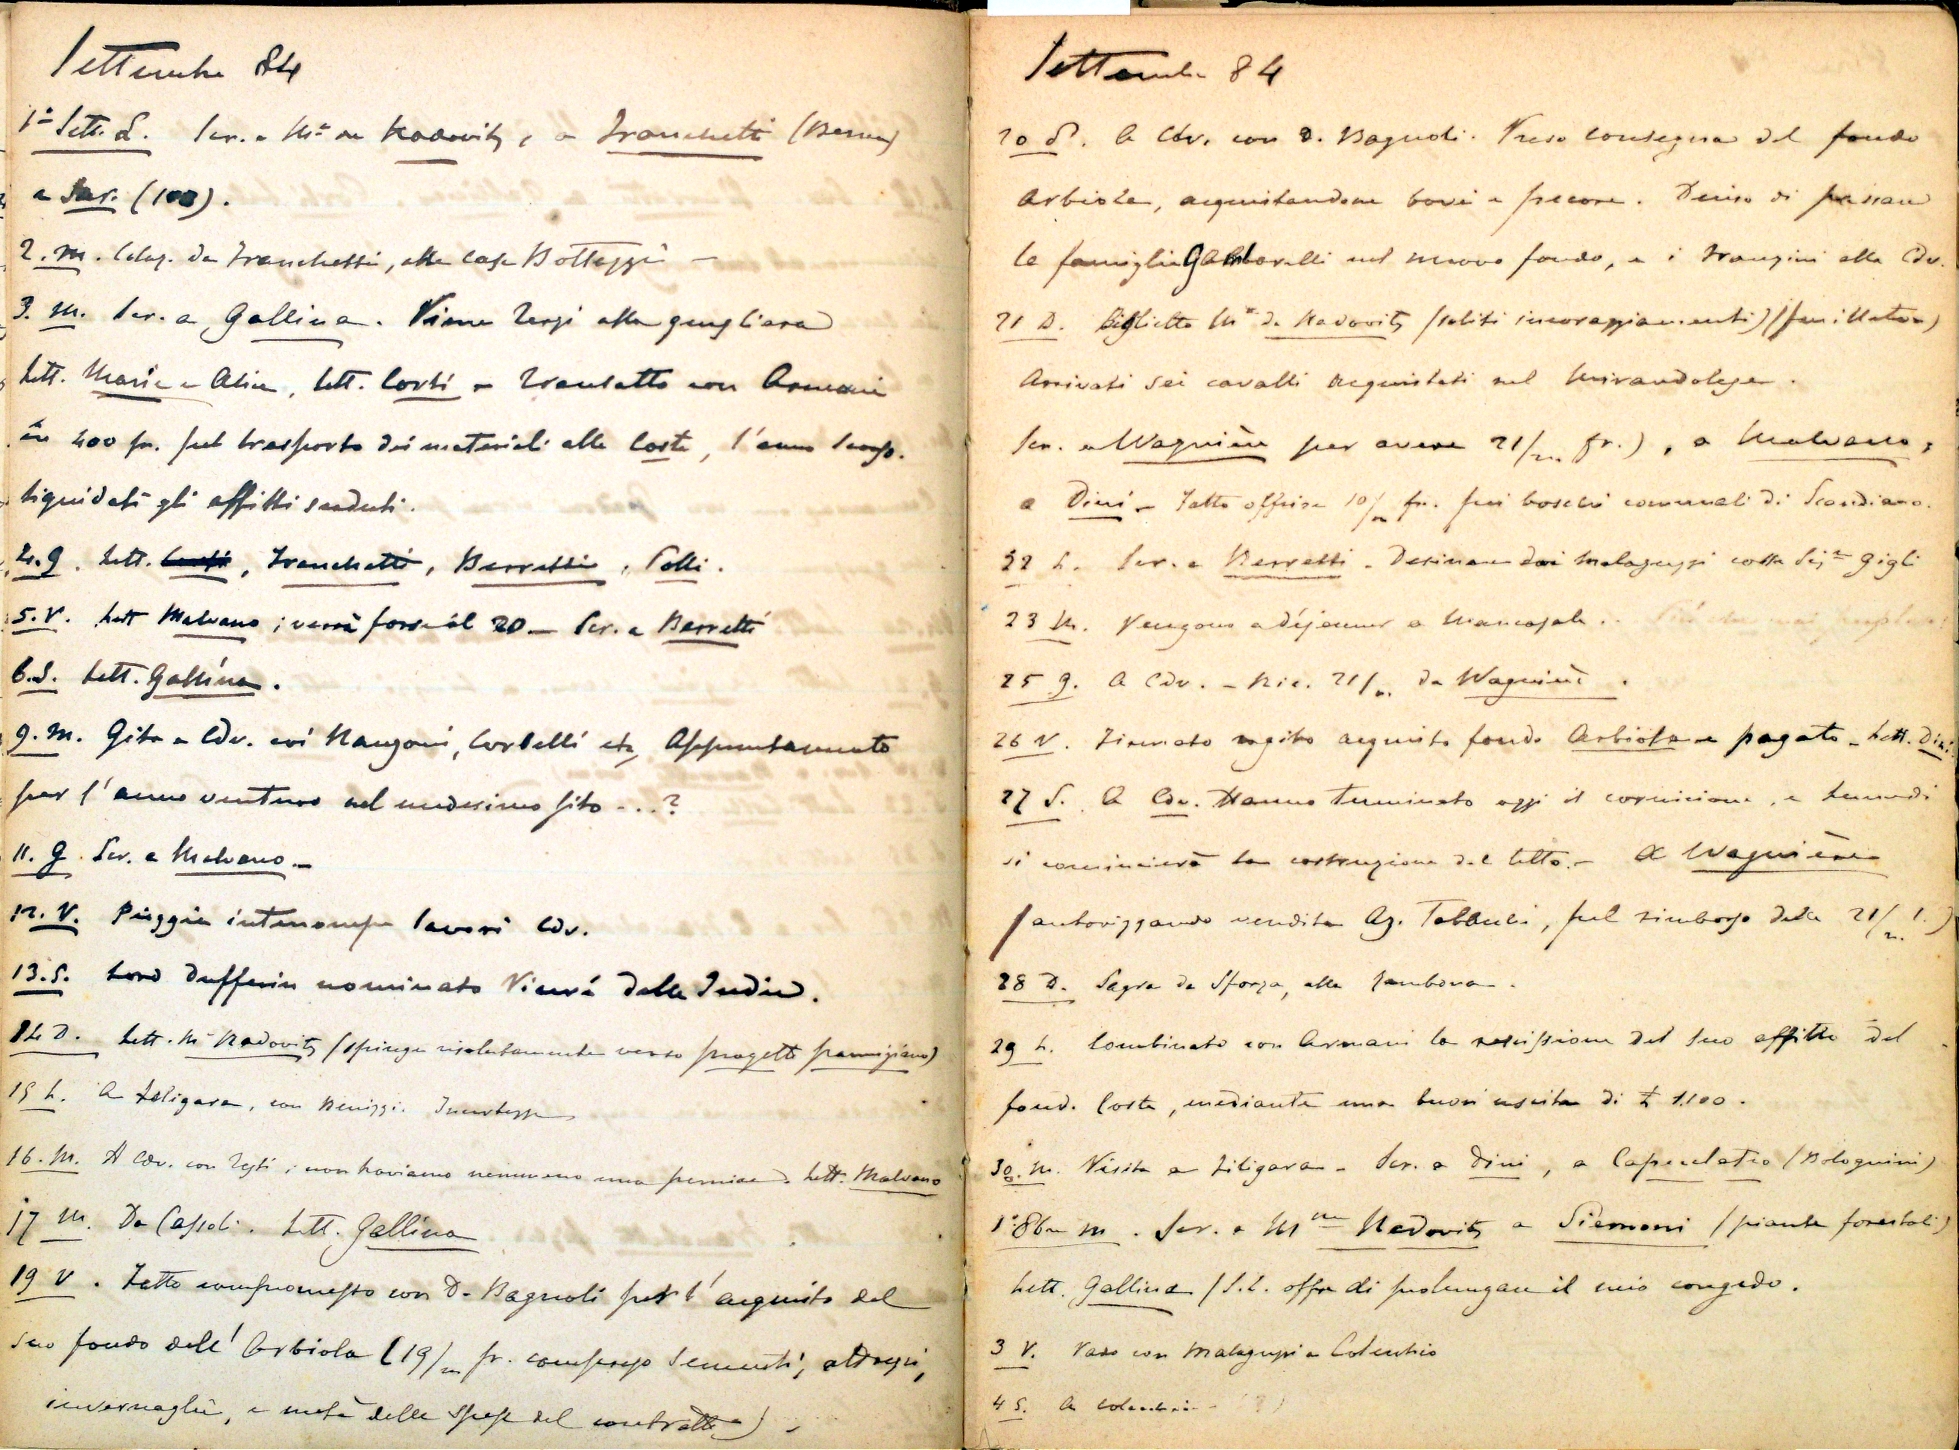 Settembre 84
1° Sett. L. Scr. a Me de Radowitz, e a Franchetti (Berna)
e Sav. (100).
2. M. Teleg. da Franchetti, alla casa Bottazzi –
3. M. Scr. a Gallina. Viene Terzi alla
Lett. Maria e Alice, Lett. Corti – Transatto con Armani
in 400 fr. pel trasporto dei materiali alla Costa, l'anno scorso.
Liquidati gli affitti scaduti.
4. G. Lett. Corti, Franchetti, Berretti, Polli.
5. V. Lett Malvano; verrà forse il 20 – Scr. a Berretti
6. S. Lett. Gallina.
9. M. Gita a Cdv. coi Mangoni, Corbelli etc, Appuntamento
per l'anno venturo nel medesimo sito ...?
11. G. Scr. a Malvano. –
12. V. Pioggia interrompe lavori Cdv.
13. S. Lord Dufferin nominato Viceré delle Indie.
14 D. Lett. Me Radowitz (spinge risolutamente verso progetto parmigiano)
15 L. A Filigara, con Benizzi. Incertezze
16. M. A Cdv. con ; non troviamo nemmeno una pernice. Lett. Malvano
17 M. Da Cassoli. Lett. Gallina
19 V. Fatto compromesso con D. Bagnoli per l'acquisto del
suo fondo dell'Arbiola (19/m fr. compreso sementi, attrezzi,
invernaglie, e metà delle spese del contratto).
Settembre 84
20 S. A Cdv. con D. Bagnoli. Preso consegna del fondo
Arbiola, acquistandone bovi e pecore. Deciso di passare
la famiglia nel nuovo fondo, e i Frangini alla Cdv.
21 D. Biglietto Me de Radowitz (soliti incoraggiamenti)
Arrivati sei cavalli acquistati nel Mirandolese.
Scr. a Wagnière per avere 21/m fr.), a Malvano,
a Dini – Fatto offrire 10/m fr. pei boschi comunali di Scandiano.
22 L. Scr. a Berretti – Desinare dai Malaguzzi colla Sigra Gigli
23 M. Vengono a déjeuner a Mancasale.
25 G. A Cdv. – Ric. 21/m da Wagnière.
26 V. Firmato rogito acquisto fondo Arbiola e pagato – Lett. Dini
27 S. A Cdv. Hanno terminato oggi il cornicione, e Lunedì
si comincierà la costruzione del tetto. – A Wagnière
(autorizzando vendita Az. Tabacchi, pel rimborso delle 21/m l.)
28 D. Sagra da Sforza, alla
29 L. Combinato con Armani la rescissione del suo affitto del
fondo Costa, mediante una buon uscita di £ 1.100.
30. M. Visita a Filigara – Scr. a Dini, a Capeclatro (Bolognini)
1° 8bre M. Scr. a Mme Radowitz a Siemoni (piante forestali)
Lett. Gallina (S.E. offre di prolungare il mio congedo.
3 V. Vado con Malaguzzi a Colecchio
4 S. A Colecchio